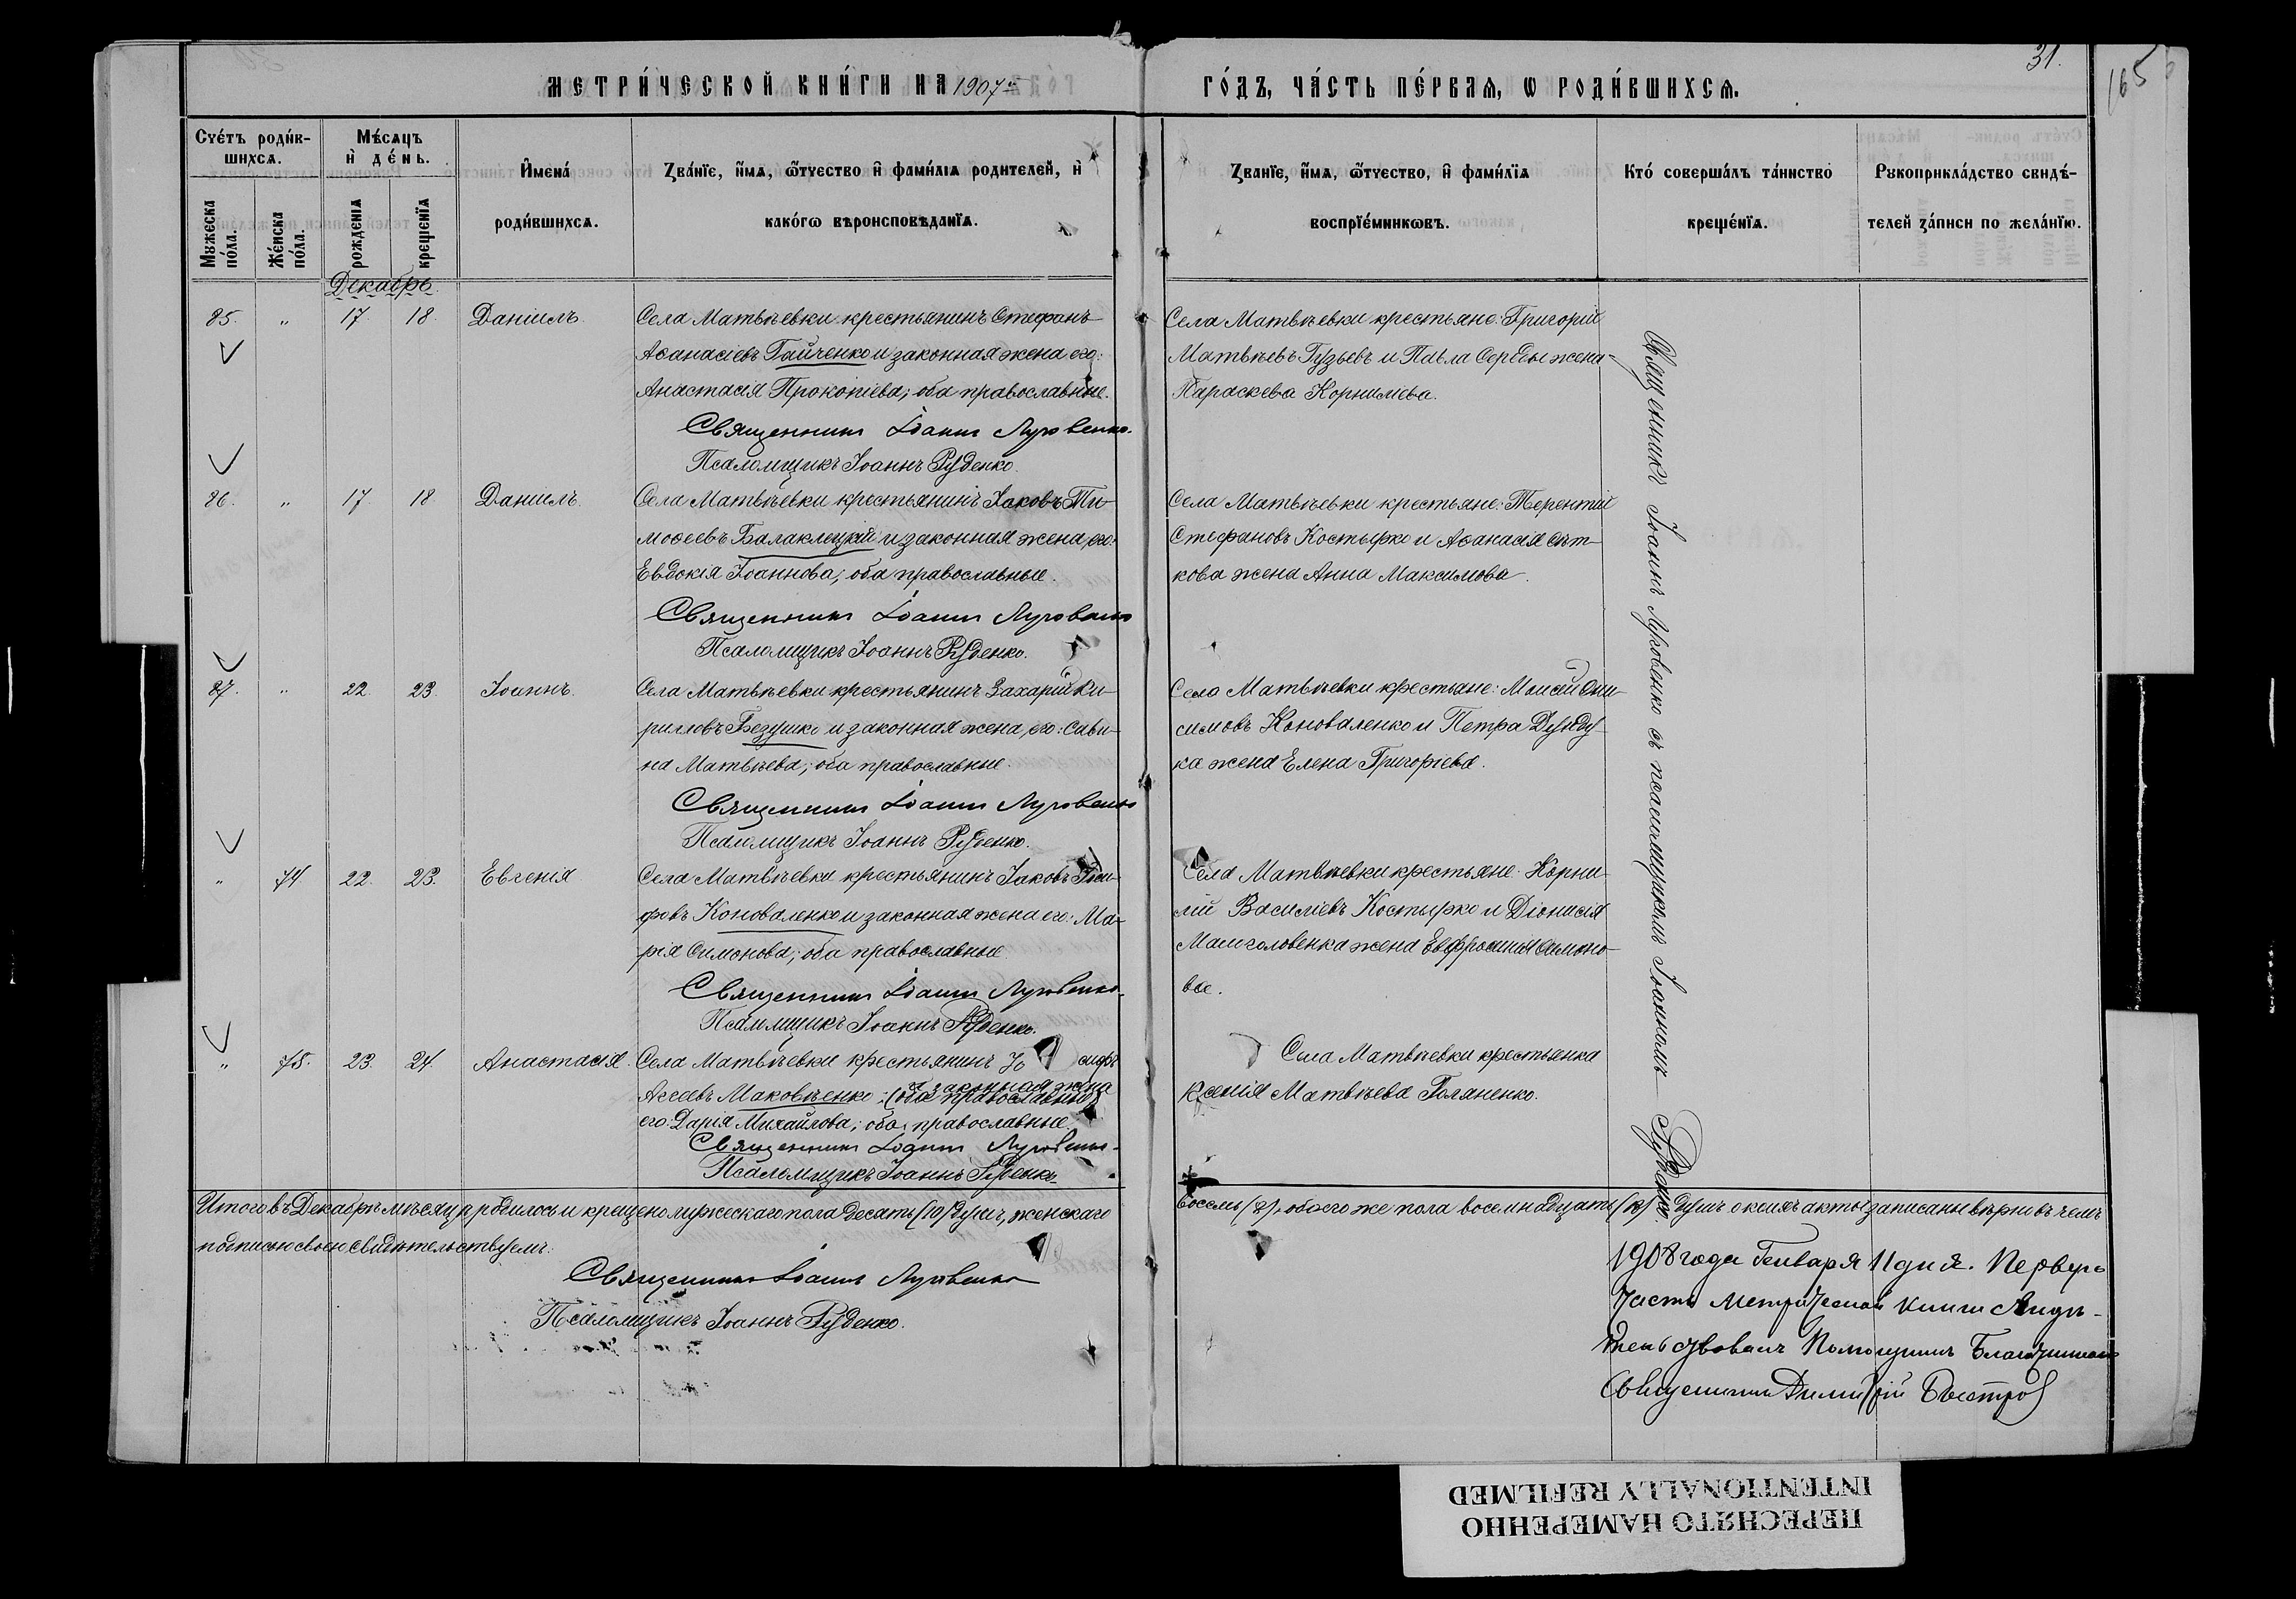 31.
165
МЕТРИ́ЧЕСКОЙ КНИ́ГИ НА 1907 й
ГО́ДЪ, ЧА́СТЬ ПЕ́РВАѦ, Ѡ РОДИ́ВШИХСѦ.
Сче́тъ роди́в-
шихсѧ.
Мѣ́сѧцъ
и҆ де́нь.
Мꙋжеска
по́ла.
Же́нска
по́ла.
рожденїѧ
крещенїѧ
И҆мена́
роди́вшихсѧ.
Ꙁва́нїе, и҆́мѧ, ѻ҆́тчество и҆ фами́лїѧ родителей, и҆
како́гѡ вѣроисповѣданїѧ.
Ꙁванїе, и҆́мѧ, ѻ҆́тчество, и҆ фами́лїѧ
воспрїе́мниковъ.
Кто́ соверша́лъ та́инство
креще́нїѧ.
Рꙋкоприкла́дство свидѣ́-
телей ꙁа́писи по жела́нїю.
Декабрь.
85. " 17. 18. Даніилъ.
Села Матвѣевки крестьянинъ Стефанъ
Аѳанасіевъ Гайченко и законная жена его:
Анастасія Прокопіева; оба православные.
Священникъ Іоаннъ Луговенко.
Псаломщикъ Іоаннъ Руденко.
Села Матвѣевки крестьяне: Григорій
Матвѣевъ Гузьевъ и Павла Сербы жена
Параскева Корниліева.
86. " 17. 18 Даніилъ.
Села Матвѣевки крестьянинъ Іаковъ Ти-
моѳеевъ Балаклецкій и законная жена его:
Евдокія Іоаннова; оба православные.
Священникъ Іоаннъ Луговенко
Псаломщикъ Іоаннъ Руденко.
Села Матвѣевки крестьяне: Терентій
Стефановъ Костырко и Аѳанасія Сыт-
кова жена Анна Максимова.
87. " 22. 23. Іоаннъ.
Села Матвѣевки крестьянинъ Захарій Ки-
рилловъ Безушко и законная жена его: Сави-
на Матвѣева; оба православные.
Священникъ Іоаннъ Луговенко
Псаломщикъ Іоаннъ Руденко.
Села Матвѣевки крестьяне: Моисей Они-
симовъ Коноваленко и Петра Дунду-
ка жена Елена Григоріева.
" 74 22. 23. Евгенія
Села Матвѣевки крестьянинъ Іаковъ
фовъ Коноваленко и законная жена его: Ма-
рія Симонова; оба православные.
Священникъ Іоаннъ Луговенко.
Псаломщикъ Іоаннъ Руденко.
Села Матвѣевки крестьяне: Корни-
лій Василіевъ Костырко и Діонисія
Машголовенка жена Евфросинія Симоно-
ва.
" 75. 23. 24. Анастасія.
Села Матвѣевки крестьянинъ Іо сифъ
и законная жена
Аггеевъ Маковѣенко; (оба православные)
его Дарія Михайлова; оба православные.
Священникъ Іоаннъ Луговенко.
Псаломщикъ Іоаннъ Руденко.
Села Матвѣевки крестьянка
Ксенія Матвѣева Голяненко.
Священникъ Іоаннъ Луговенко съ псаломщикомъ Іоанномъ Руденко.
Итого въ Декабрѣ мѣсяцѣ родилось и крещено мужескаго пола десять (10) душъ, женскаго
восемь (8), обоего же пола восемнадцать (18) душъ о коихъ акты записаны вѣрно въ чемъ
подписью своею свидѣтельствуемъ:
Священникъ Іоаннъ Луговенко
Псаломщикъ Іоаннъ Руденко.
1908 года Генваря 11 дня. Первую
часть Метрической книги свидѣ-
тельствовалъ Помощникъ Благочиннаго
Священникъ Димитрій Быстровъ
ПЕРЕСНЯТО НАМЕРЕННО
INTENTIONALLY REFILMED